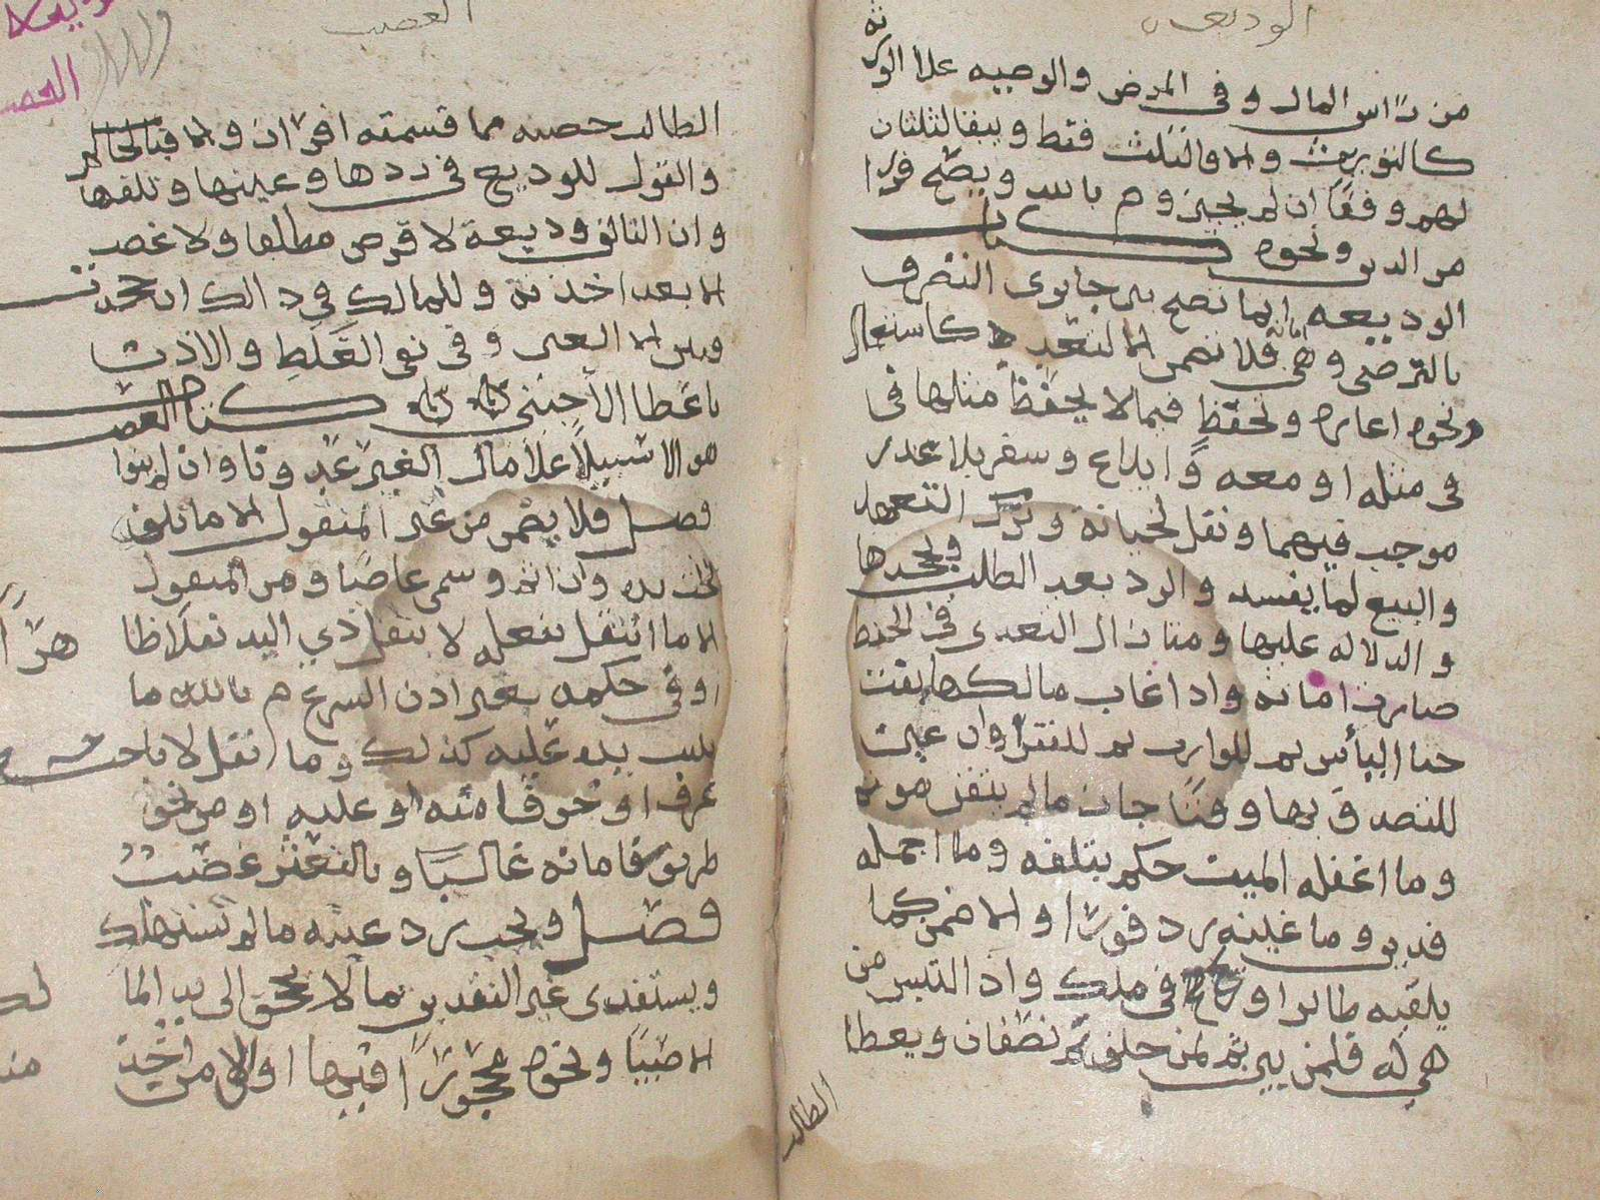 الوديعه
من رأس المال وفي المرض والوصيه علا الورثه
كالتوريث والا فالثلث فقط ويبقا الثلثان
لهم وقفًا ان لم يجيزوا م بالله ويصح فرارا
من الدين ونحوه كتاب
الوديعه انما تصح بين جايزى التصرف
بالتراضى وهي امانه فلا تضمن الا لتعد كاستعمال
ونحوه اعاره وتحفظ فيما لا يحفظ مثلها فى
فى مثله او معه وايداع وسفر بلا عذر
موجب فيهما ونقل لخيانة وترك التعهد
والبيع لما يفسد والرد بعد الطلب وبجحدها
والدلاله عليها ومتا زال التعدى فى الحفظ
صارت امانه واذا غاب مالكها بقيت
حتا اليأس ثم للوارث ثم للفقرا وان عين
للتصدق بها وقتًا جاز ما لم يتيقن موته
وما اغفله الميت حكم بتلفه وما اجمله
فدين وما عينه رد فورًا والا ضمن كما
يلقيه طائر او ريح فى ملك واذا التبس من
هي له فلمن بين ثم لمن حلف ثم نصفان ويعطا
الطالب
الغصب
الطالب حصته مما قسمته افراز والا فبالحاكم
والقول للوديع فى ردها وعينها وتلفها
وان التالف وديعة لا قرض مطلقا ولا غصب
الا بعد اخذته وللمالك في ذالك ان جحدت
وبين الا العين وفى نفى الغلط والاذن
باعطا الأجنبي كتاب الغصب
هو الاستيلا علا مال الغير عدوانا وان لم ينوا
فصل فلا يضمن من غير المنقول الا ما تلف
تحت يده وان اثم وسمى غاصبًا ومن المنقول
الا ما انتقل بفعله لا بنقل ذي اليد نقلا ظا هرًا
او فى حكمه بغير اذن الشرع م بالله ما
ثبت يده عليه كذلك وما نقل لاباحة
عرف او خوفا منه او عليه او من نحو
طريق فامانه غالبًا وبالتعثر غصب
فصل ويجب رد عينه ما لم تستهلك
ويستفدى غير النقدين بما لا يجحف الى يد المالك
الا صبيًا ونحوه محجورًا فيها او الى من اخذ منه